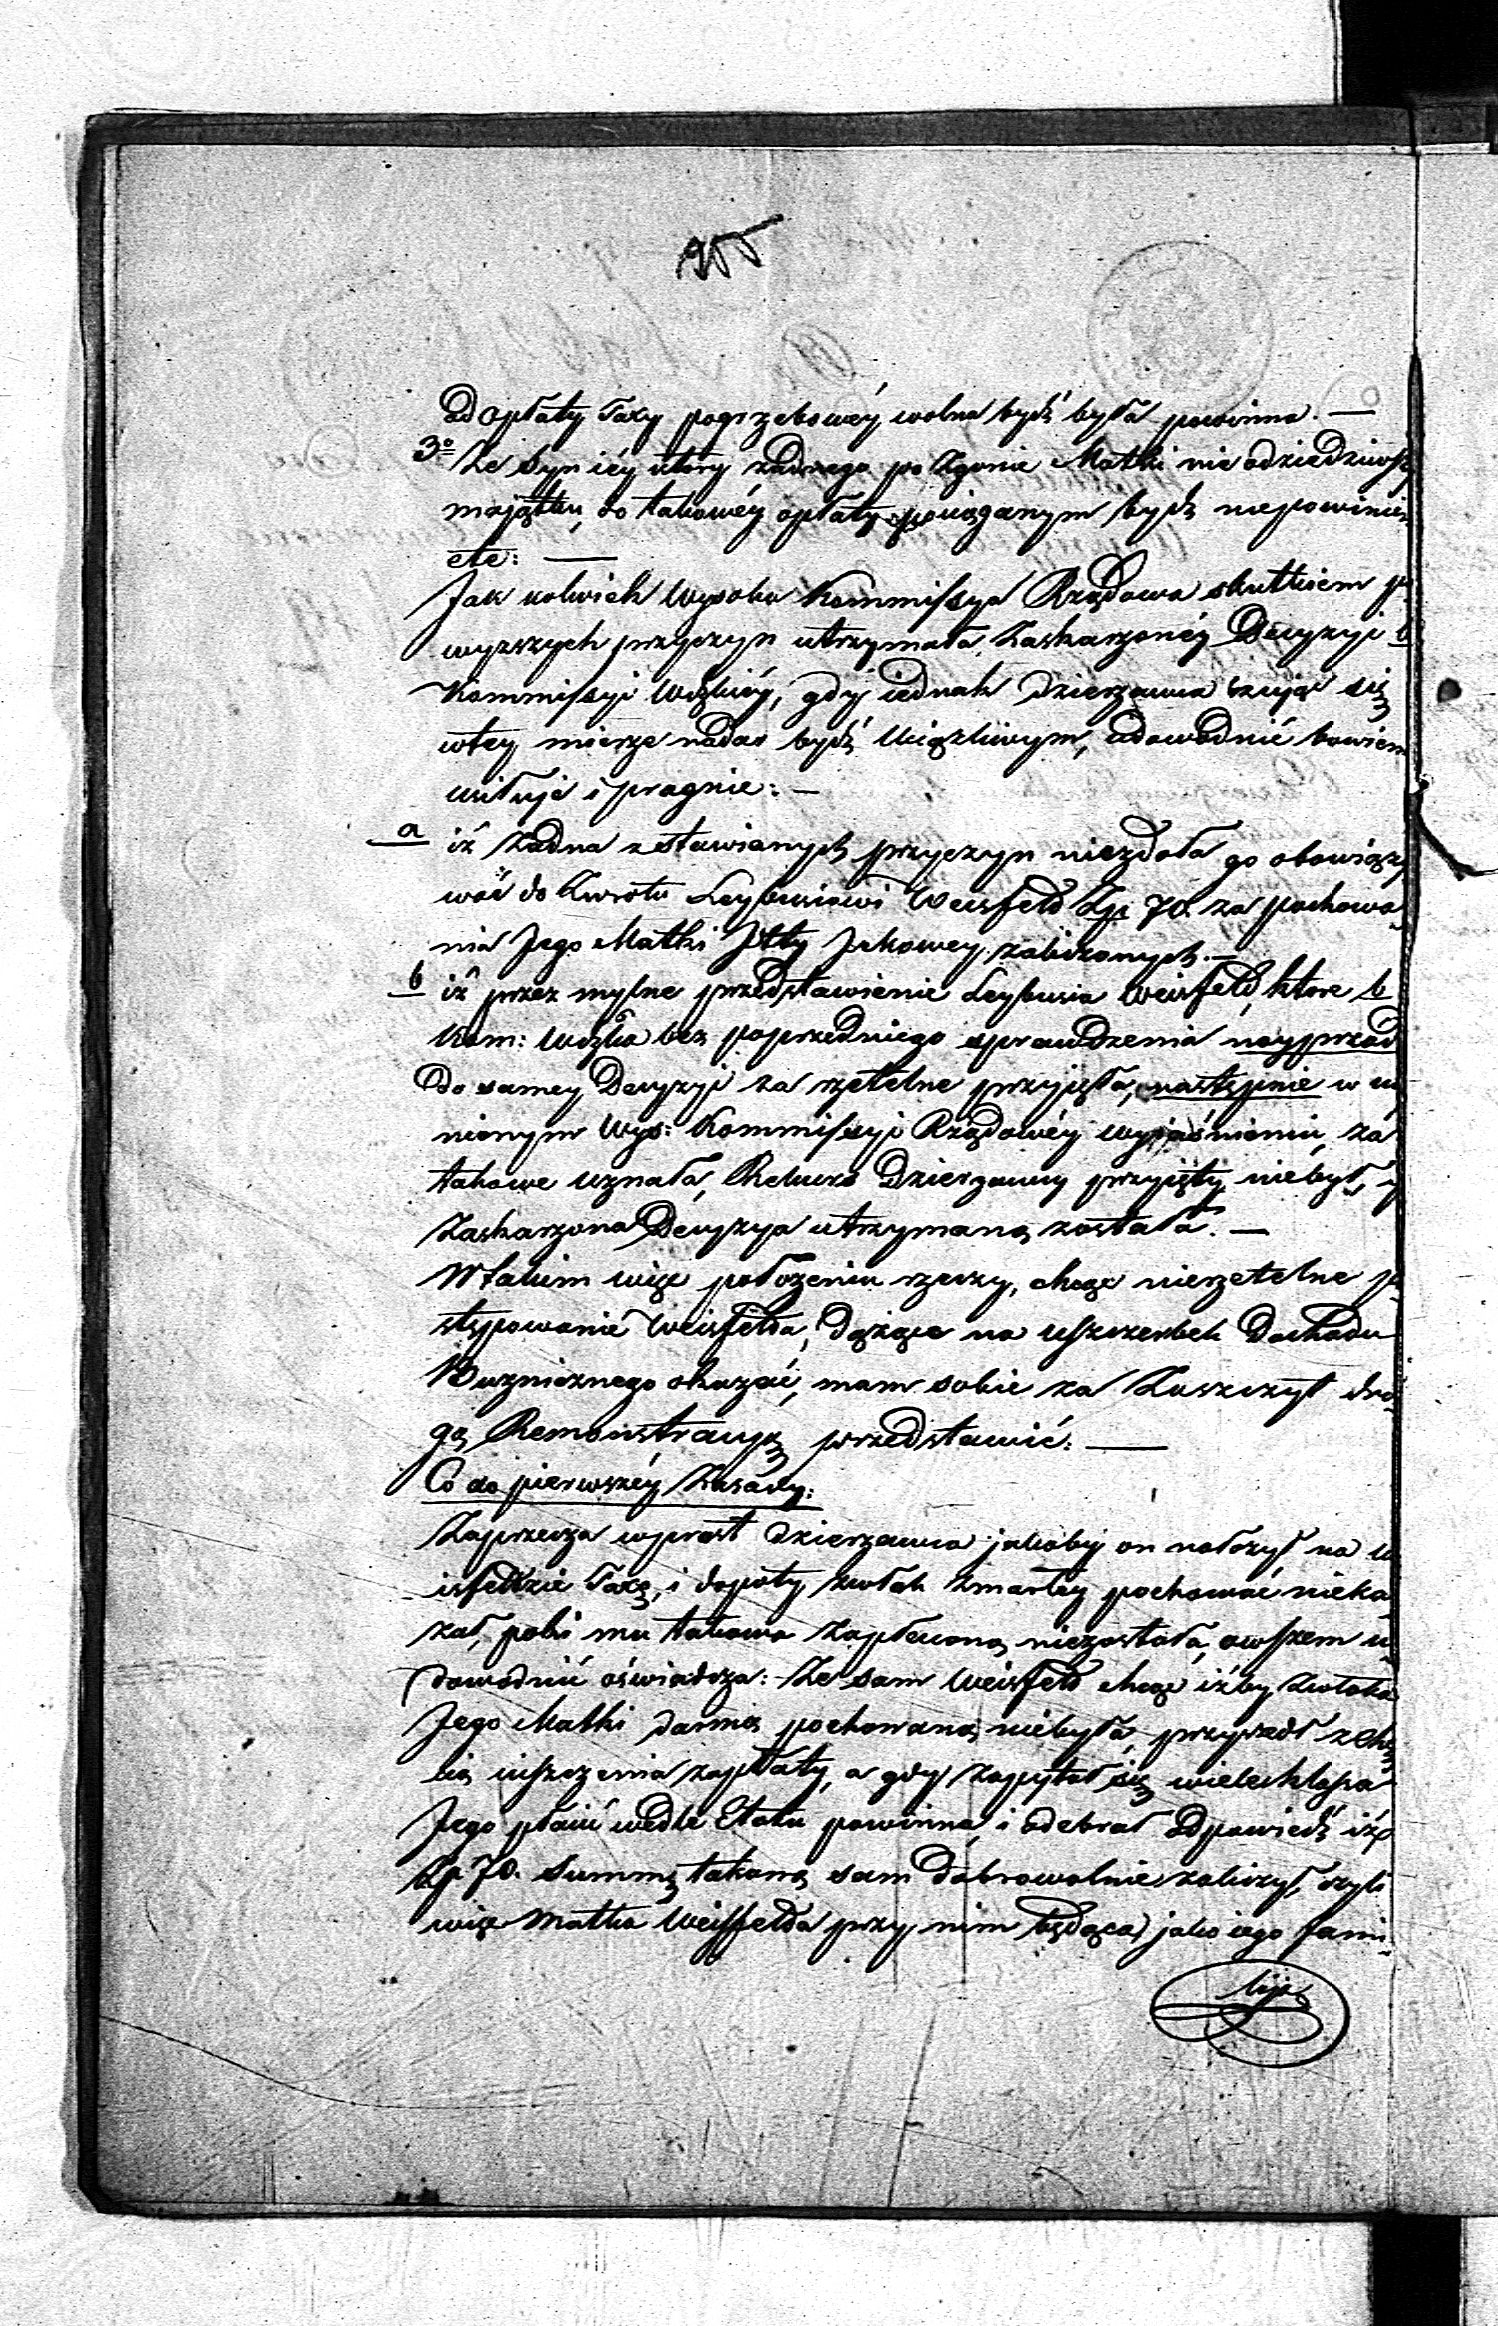 255
od opłaty Taxy pogrzebowéy wolna bydź była powinna. —
3º Że Syn iéy który żadnego po Zgonie Matki nie odziedziczył
majątku, do takowéy opłaty pociąganym bydź niepowinien
etc: —
Jak kolwiek Wysoka Kommissya Rządowa skutkiem po
wyższych przyczyn utrzymała Zaskarzonéy Decyzyi
Kommissyi Wdzkiéy, gdy iednak Dzierzawca czując się
wtey mierze nadal bydź Uciążliwym, udowodnić bowiem
usiłuje i pragnie: —
a iż żadna z stawianych przyczyn niezdoła go obowiązy
wać do Zwrotu Leybusiowi Weisfeld Zp 70. za pochowa
nia Jego Matki Jtty Jckowey zaliczonych. —
b iż przez mylne przedstawienie Leybusia Weisfeld, które
Kom: Wdzka bez poprzedniego sprawdzenia nayprzód
do samey Decyzyi za rzetelne przyjęła, następnie w
nionym Wys: Kommissyi Rządowéy wyjaśnieniu, za
takowe uznała, Rekurs Dzierzawcy przyięty niebył, y
Zaskarzona Decyzya utrzymaną została. —
W takim więc położeniu rzeczy, chcąc nierzetelne po
stępowanie Weisfelda, dążące na uszczerbek Dochodu
Bużnicznego okazać, mam sobie za Zaszczyt dro
gą Remonstracyą przedstawić: —
Co do pierwszéy Zasady:
Zaprzecza wprost Dzierzawca jakoby on nałożył na We
isfeldzie Taxę, i dopóty zwłok Zmarłey pochować nieka
zał, poki mu takowa Zapłaconą niezostała, owszem u
dowodnić oświadcza: Że sam Weisfeld chcąc iżby Zwłoka
Jego Matki darmo pochowaną niebyła, przyszedł z chę
cią uiszczenia zapłaty, a gdy zapytał się wiele klassa
Jego płacić wedle Etatu powinna, i odebrał odpowiedź iż
Zp 70. Summę takową sam dobrowolnie zaliczył, czyli
więc Matka Weisfelda przy nim będąca, jako iego fami
liją